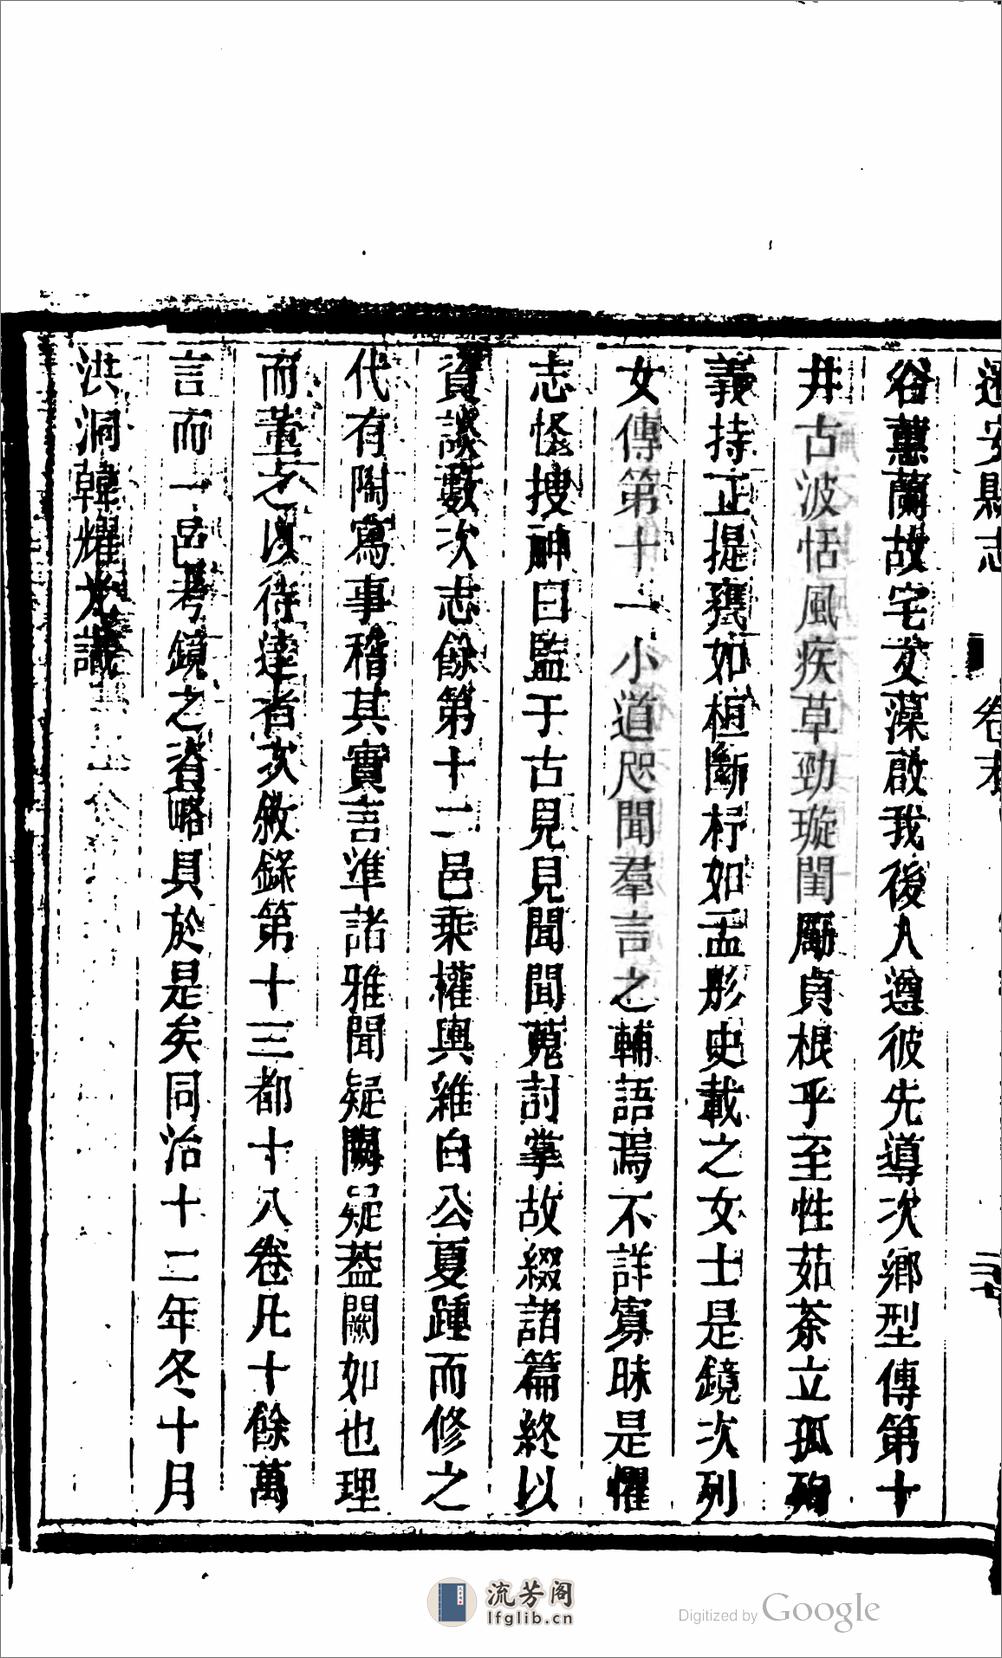 遷安縣志 卷末 二十
谷蕙蘭故宅文藻啟我後人遵彼先導次鄉型傳第十
井古波恬風疾草勁璇閨勵貞根乎至性茹荼立孤殉
義持正提甕如桓斷杼如孟彤史載之女士是鏡次列
女傳第十一小道咫聞羣言之輔語焉不詳寡昧是懼
志怪搜神曰監于古見見聞聞蒐討掌故綴諸篇終以
資談數次志餘第十二邑乘權輿雒白公夏踵而修之
代有陶寫事稽其實言準諸雅聞疑闕疑葢闕如也理
而董之以待達者次敘錄第十三都十八卷凡十餘萬
言而一邑考鏡之資略具於是矣同治十二年冬十月
洪洞韓耀光識
流芳阁
lfglib.cn
Digitized by Google